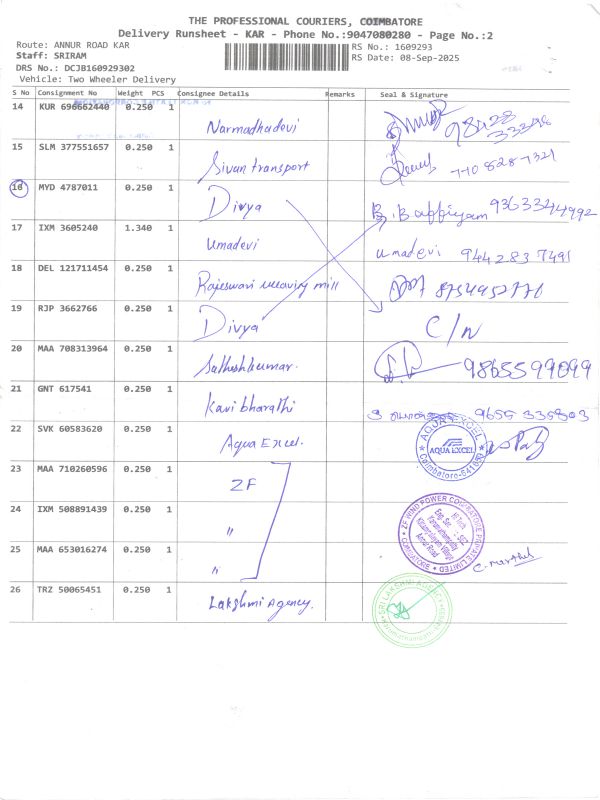 THE PROFESSIONAL COURIERS, COIMBATORE
Delivery Runsheet - KAR - Phone No.:9047080280 - Page No.:2
Route: ANNUR ROAD KAR
RS No.: 1609293
Staff: SRIRAM
RS Date: 08-Sep-2025
DRS No.: DCJB160929302
Vehicle: Two Wheeler Delivery
S No Consignment No Weight PCS Consignee Details Remarks Seal & Signature
14 KUR 696662440 0.250 1 Narmadhadevi
15 SLM 377551657 0.250 1 Sivan transport
16 MYD 4787011 0.250 1 Divya 9363344992
17 IXM 3605240 1.340 1 Umadevi umadevi 9442837491
18 DEL 121711454 0.250 1 Rajeswari weaving mill
19 RJP 3662766 0.250 1 Divya C/N
20 MAA 708313964 0.250 1 Sathishkumar. 9865599099
21 GNT 617541 0.250 1 Kavi bharathi 9655 335803
22 SVK 60583620 0.250 1 Aqua Excel. AQUA EXCEL AQUA EXCEL Coimbatore-641
23 MAA 710260596 0.250 1 ZF
24 IXM 508891439 0.250 1 "
25 MAA 653016274 0.250 1 " ZF WIND POWER COIMBATORE PRIVATE LIMITED COIMBATORE Annur Road
26 TRZ 50065451 0.250 1 Lakshmi Agency. SRI LAKSHMI AGENCY